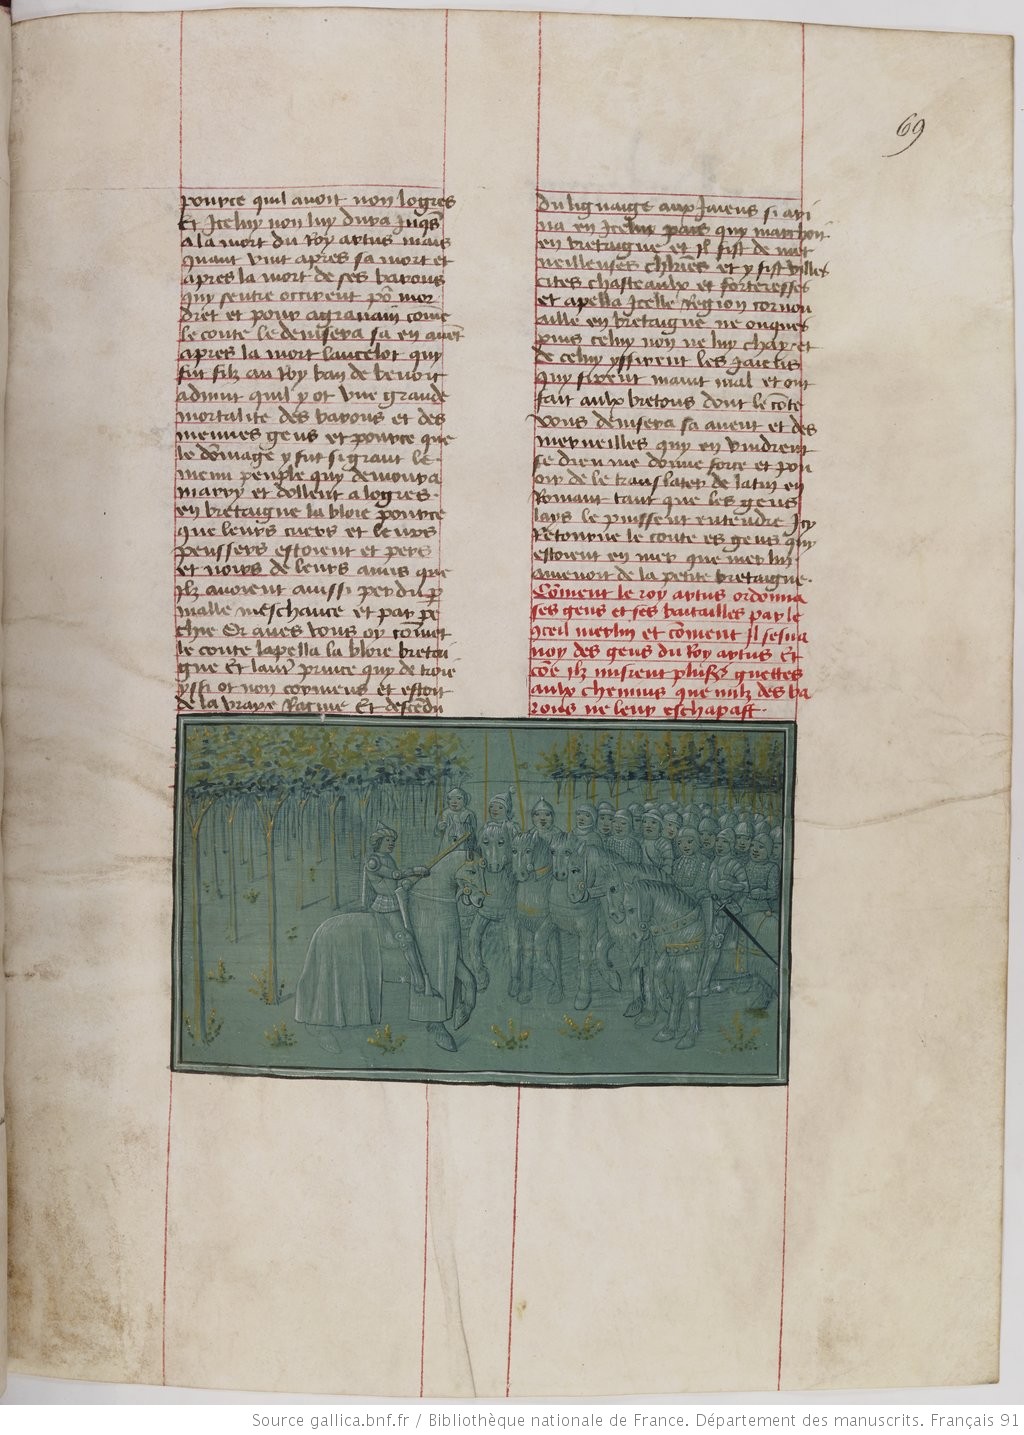 69
pource quil avoit non logres
Et Icelui non luy dura Jusqs
a la mort du Roy artus mais
quant vint apres sa mort et
apres la mort de ses barons
quy sentre occirent po mor
dret et pour agravain come
le conte le devisera sa en avet
apres la mort lancelot quy
fut filz au Roy ban de benoit
advint quil y ot une grande
mortalite des barons et des
menues gens et pource que
le domage y fut si grant le
menu peuple quy demoura
marry et dollent a logres
en bretaigne la bloie pource
que leurs cuers et leurs
penssers estoient et pers
et noirs de leurs amis que
ilz avoient aussi perdu p
malle meschance et par pe
chie Or aves vous oy comet
le conte lapella la bloie bretai
gne Et lautr prince quy de troie
yssi ot non corineus et estoit
de la vraye Racine Et descedu
du lignaige aux Jaiens si ari
va en Icelui pais quy marchoit
en bretaigne et Il fist de mer
veilleuses chises et y fist villes
cites chasteaulx et forteresses
et apella Icelle Region cornou
aille en bretaigne ne onques
puis celuy non ne luy chay et
de celuy yssirent les Jaiens
quy firent maint mal et ont
fait aulx bretons dont le cote
vous devisera sa avent et des
merveilles quy en vindrent
se dieu me donne force et pou
oir de le translater de latin en
Romant tant que les gens
lays le puissent entendre Icy
Retourne le conte es gens quy
estoient en mer que merlin
amenoit de la petite bretaigne
Coment le roy artus ordonna
ses gens et ses batailles par le
conceil merlin et coment Il sesva
noy des gens du Roy artus Et
coe ilz misrent plusrs guettes
aulx chemins que nulz des ba
rons ne leur eschapast
Source gallica.bnf.fr / Bibliothèque nationale de France. Département des manuscrits. Français 91